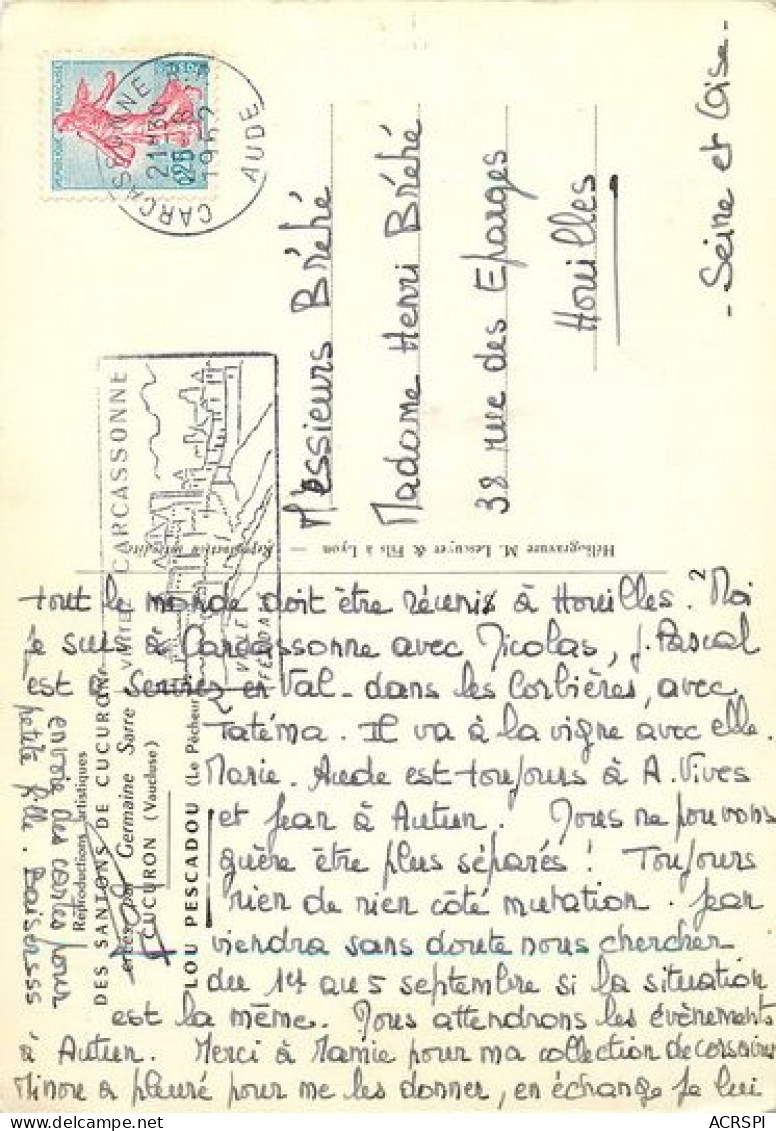 REPUBLIQUE FRANÇAISE
0,20
CARCASSONNE R.P.
21H30
1962
AUDE
VISITEZ CARCASSONNE
Messieurs Bréhé
Madame Henri Bréhé
38 rue des Eparges
Houilles
- Seine et Oise -
Héliogravure M. Lescuyer & Fils à Lyon — Reproduction interdite
Réproductions artistiques
DES SANTONS DE CUCURON
créés par Germaine Sarre
CUCURON (Vaucluse)
LOU PESCADOU (Le Pêcheur
tout le monde doit être réunis à Houilles. ² Moi
Je suis à Carcassonne avec Nicolas, J. Pascal
est à en Val - dans les Corbières, avec
Tatéma. Il va à la vigne avec elle.
Marie-Aude est toujours à A. Vives
et Jean à Autun. Nous ne pouvons
guère être plus séparés ! Toujours
rien de rien côté mutation. Jean
viendra sans doute nous chercher
du 1er au 5 septembre si la situation
est la même. Nous attendrons les évènements
à Autun. Merci à Mamie pour ma collection de corsaires
a pleuré pour me les donner, en échange je lui
envoie des cartes pour
petite fille. Baisersss
ACRSPI